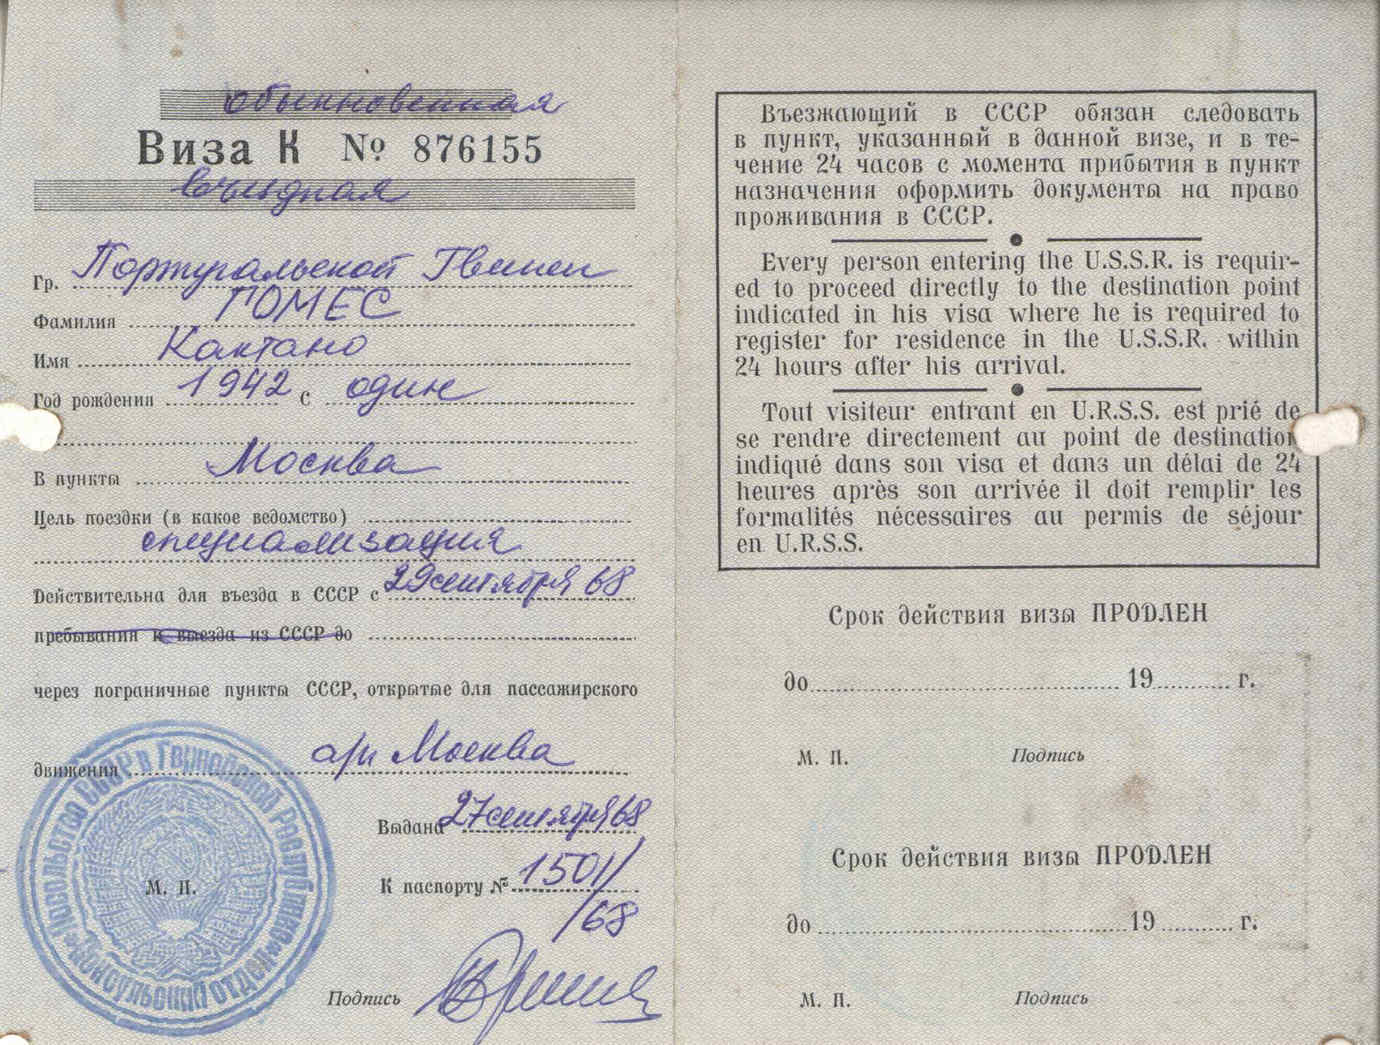 обыкновенная
Виза К № 876155
въездная
Гр. Португальской Гвинеи
Фамилия ГОМЕС
Имя Каэтано
Год рождения 1942 с один
В пункты Москва
Цель поездки (в какое ведомство)
специализация
Действительна для въезда в СССР с 29 сентября 68
пребывания и выезда из СССР до
через пограничные пункты СССР, открытые для пассажирского
движения а/п Москва
Выдана 27 сентября 68
М. П.
К паспорту № 1501/
/68
Подпись
Посольство СССР в Гвинейской Республике
Консульский отдел
Въезжающий в СССР обязан следовать
в пункт, указанный в данной визе, и в те-
чение 24 часов с момента прибытия в пункт
назначения оформить документы на право
проживания в СССР.
Every person entering the U.S.S.R. is requir-
ed to proceed directly to the destination point
indicated in his visa where he is required to
register for residence in the U.S.S.R. within
24 hours after his arrival.
Tout visiteur entrant en U.R.S.S. est prié de
se rendre directement au point de destination
indiqué dans son visa et dans un délai de 24
heures après son arrivée il doit remplir les
formalités nécessaires au permis de séjour
en U.R.S.S.
Срок действия визы ПРОДЛЕН
до 19 г.
М. П. Подпись
Срок действия визы ПРОДЛЕН
до 19 г.
М. П. Подпись